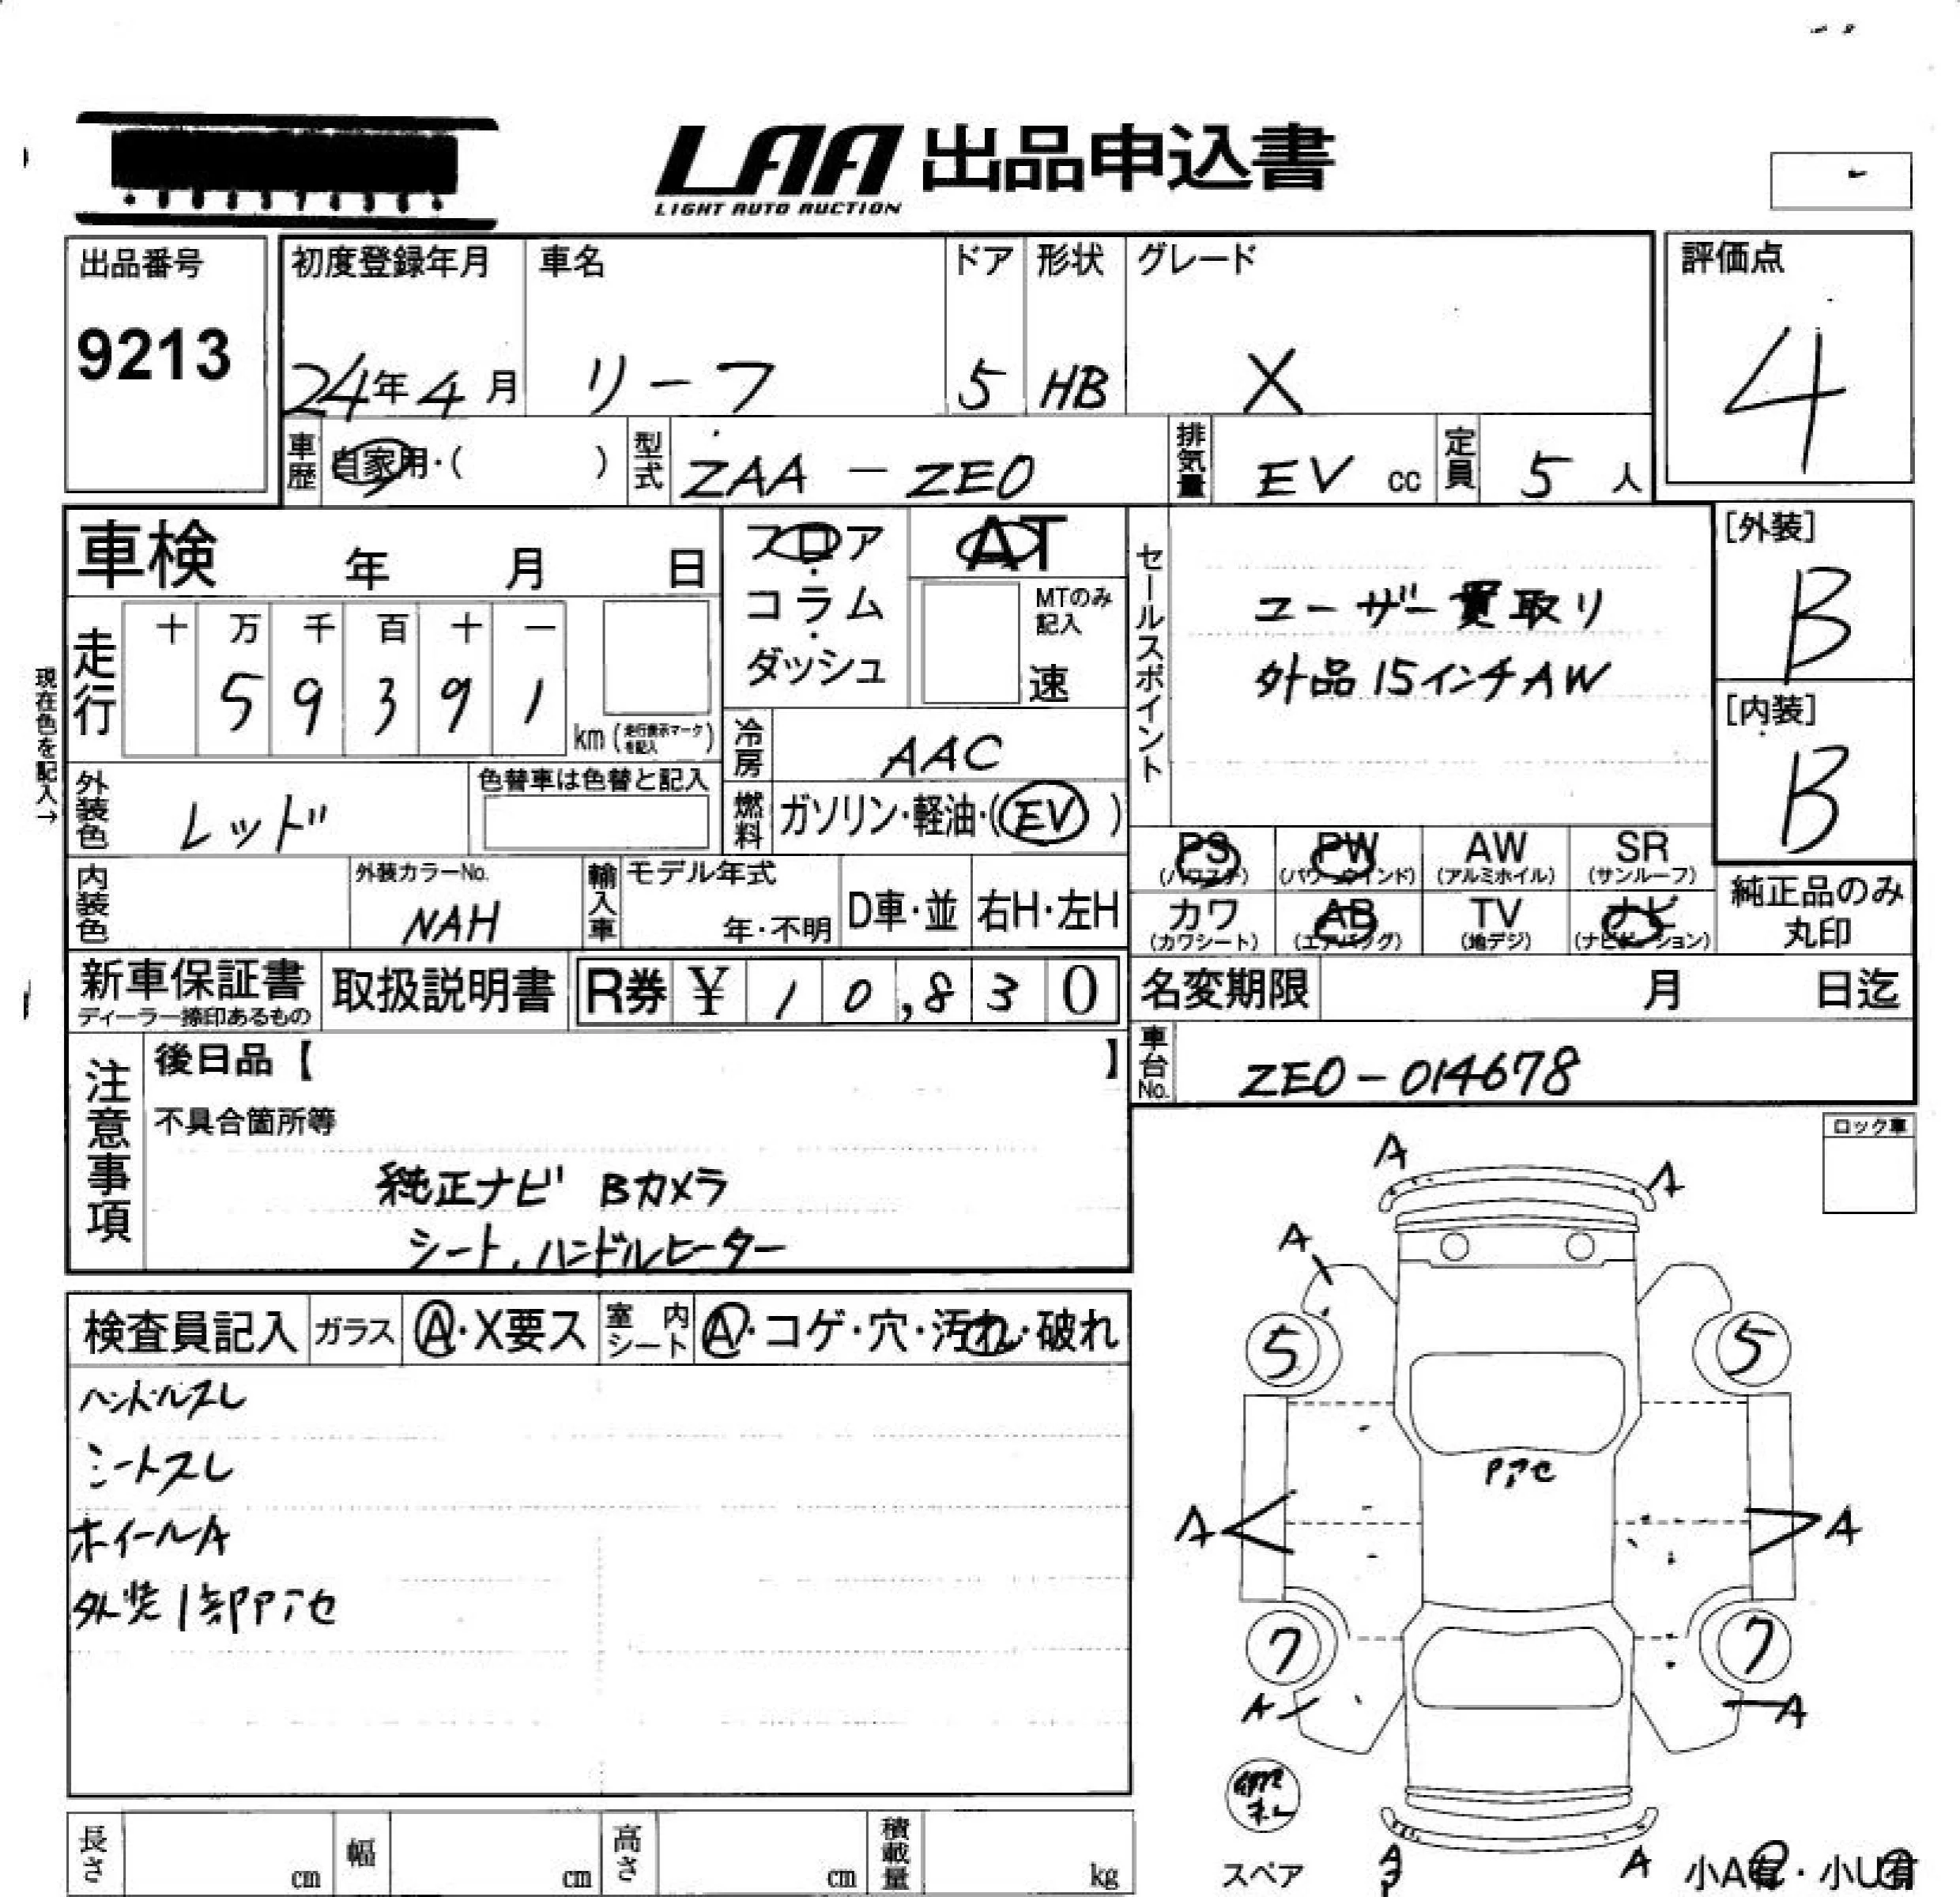 LAA 出品申込書
LIGHT AUTO AUCTION
出品番号
9213
初度登録年月
24年4月
車名
リーフ
ドア
5
形状
HB
グレード
X
評価点
4
車歴 自家用・( )
型式 ZAA-ZE0
排気量 EV cc
定員 5 人
車検 年 月 日
走行
十 万 千 百 十 一
5 9 3 9 1
km (走行表示マークを記入)
現在色を記入→
フロア・コラム・ダッシュ
AT
MTのみ記入
速
冷房 AAC
燃料 ガソリン・軽油・(EV)
セールスポイント
ユーザー買取り
外品15インチAW
[外装]
B
[内装]
B
外装色 レッド
色替車は色替と記入
内装色
外装カラーNo.
NAH
輸入車
モデル年式
年・不明
D車・並
右H・左H
PS (パワステ)
PW (パワーウインド)
AW (アルミホイル)
SR (サンルーフ)
カワ (カワシート)
AB (エアバッグ)
TV (地デジ)
ナビ (ナビゲーション)
純正品のみ丸印
新車保証書
ディーラー捺印あるもの
取扱説明書
R券 ¥ 10,830
名変期限 月 日迄
車台No. ZE0-014678
注意事項
後日品【 】
不具合箇所等
純正ナビ Bカメラ
シート、ハンドルヒーター
ロック車
検査員記入
ガラス Ⓐ・X要ス
室内シート Ⓐ・コゲ・穴・汚れ・破れ
ハンドルスレ
シートスレ
ホイールA
外装1部Pアセ
A
A
A
5
5
Pアセ
A
A
7
7
A
A
スペア
A
A
小A有・小U有
長さ cm
幅 cm
高さ cm
積載量 kg